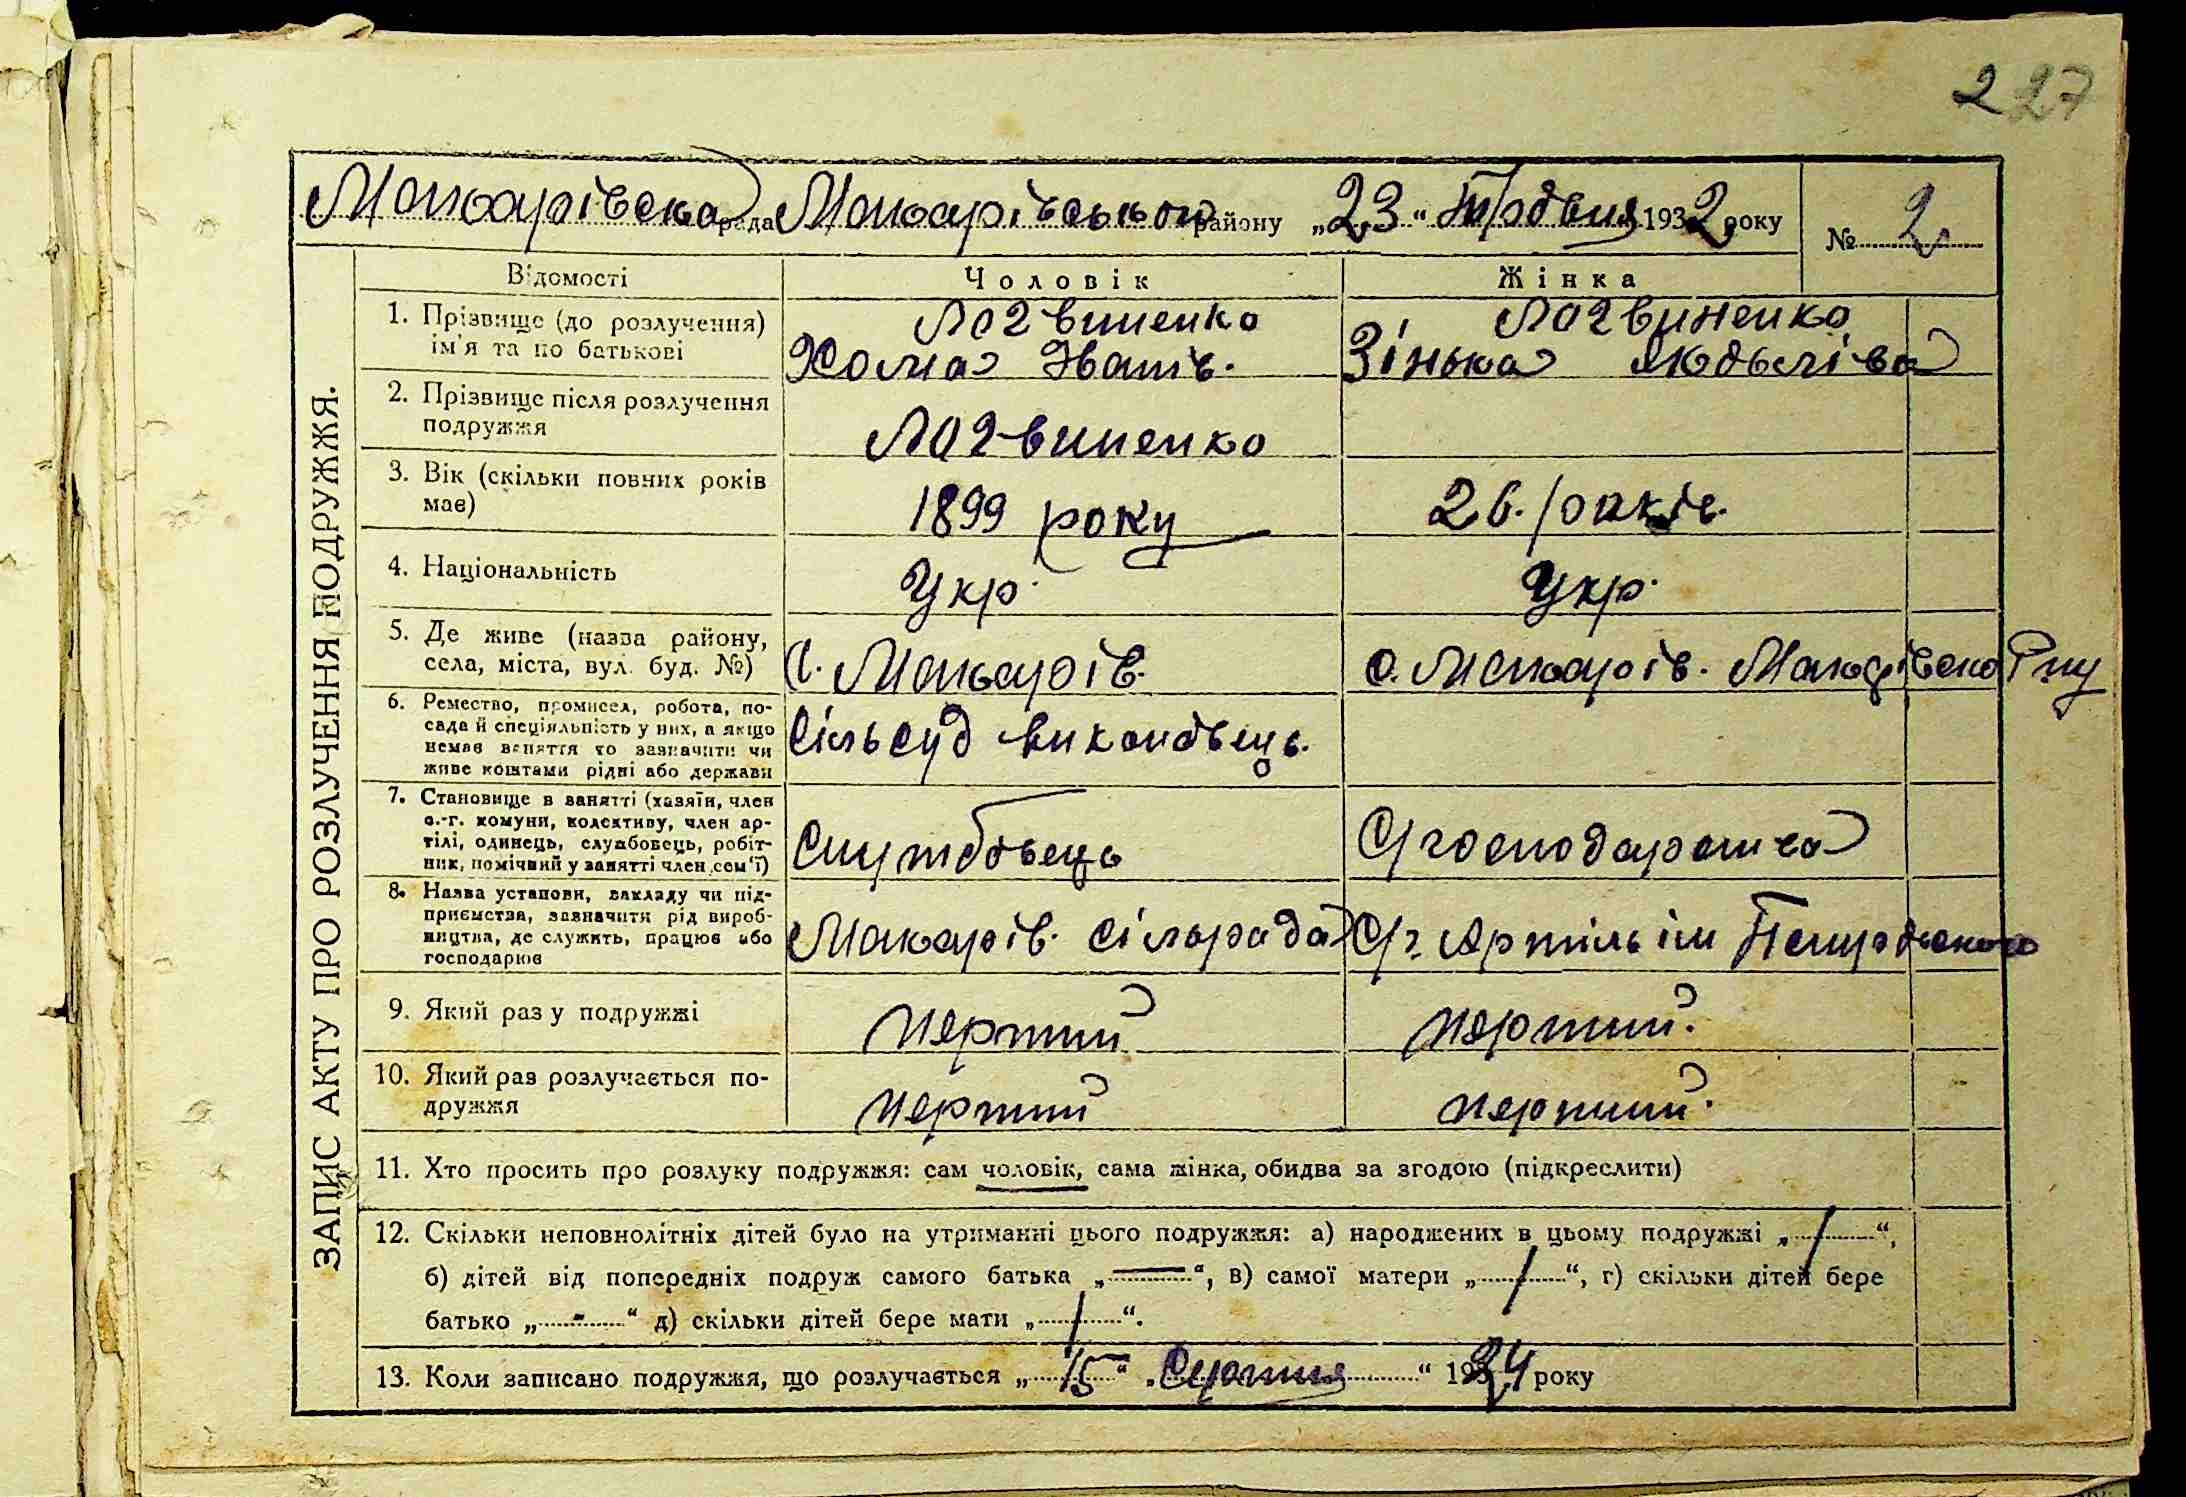 227
Макарівська рада Макарівського району „23“ Травня 1932 року № 2
ЗАПИС АКТУ ПРО РОЗЛУЧЕННЯ ПОДРУЖЖЯ.
Відомості Чоловік Жінка
1. Прізвище (до розлучення) Логвиненко Логвиненко
ім'я та по батькові Хома Іванів. Зінька Яковлівна
2. Прізвище після розлучення
подружжя Логвиненко
3. Вік (скільки повних років
має) 1899 року 26. років.
4. Національність Укр. Укр.
5. Де живе (назва району,
села, міста, вул. буд. №) С. Макарів. с. Макарів. Макарівсько
6. Ремество, промисел, робота, по-
сада й спеціяльність у них, а якщо
немає заняття то зазначити чи
живе коштами рідні або держави Сільсуд виконавець.
7. Становище в занятті (хазяїн, член
с.-г. комуни, колективу, член ар-
тілі, одинець, службовець, робіт-
ник, помічний у занятті член сем'ї) Службовець С/господарашка
8. Назва установи, закладу чи під-
приємства, зазначити рід вироб-
ництва, де служить, працює або
господарює Макарів. сільрада С/г. Артіль ім
9. Який раз у подружжі перший перший.
10. Який раз розлучається по-
дружжя перший перший.
11. Хто просить про розлуку подружжя: сам чоловік, сама жінка, обидва за згодою (підкреслити)
12. Скільки неповнолітніх дітей було на утриманні цього подружжя: а) народжених в цьому подружжі „/“,
б) дітей від попередніх подруж самого батька „—“, в) самої матери „/“, г) скільки дітей бере
батько „-“ д) скільки дітей бере мати „/“.
13. Коли записано подружжя, що розлучається „15“ „Серпня“ 1924 року